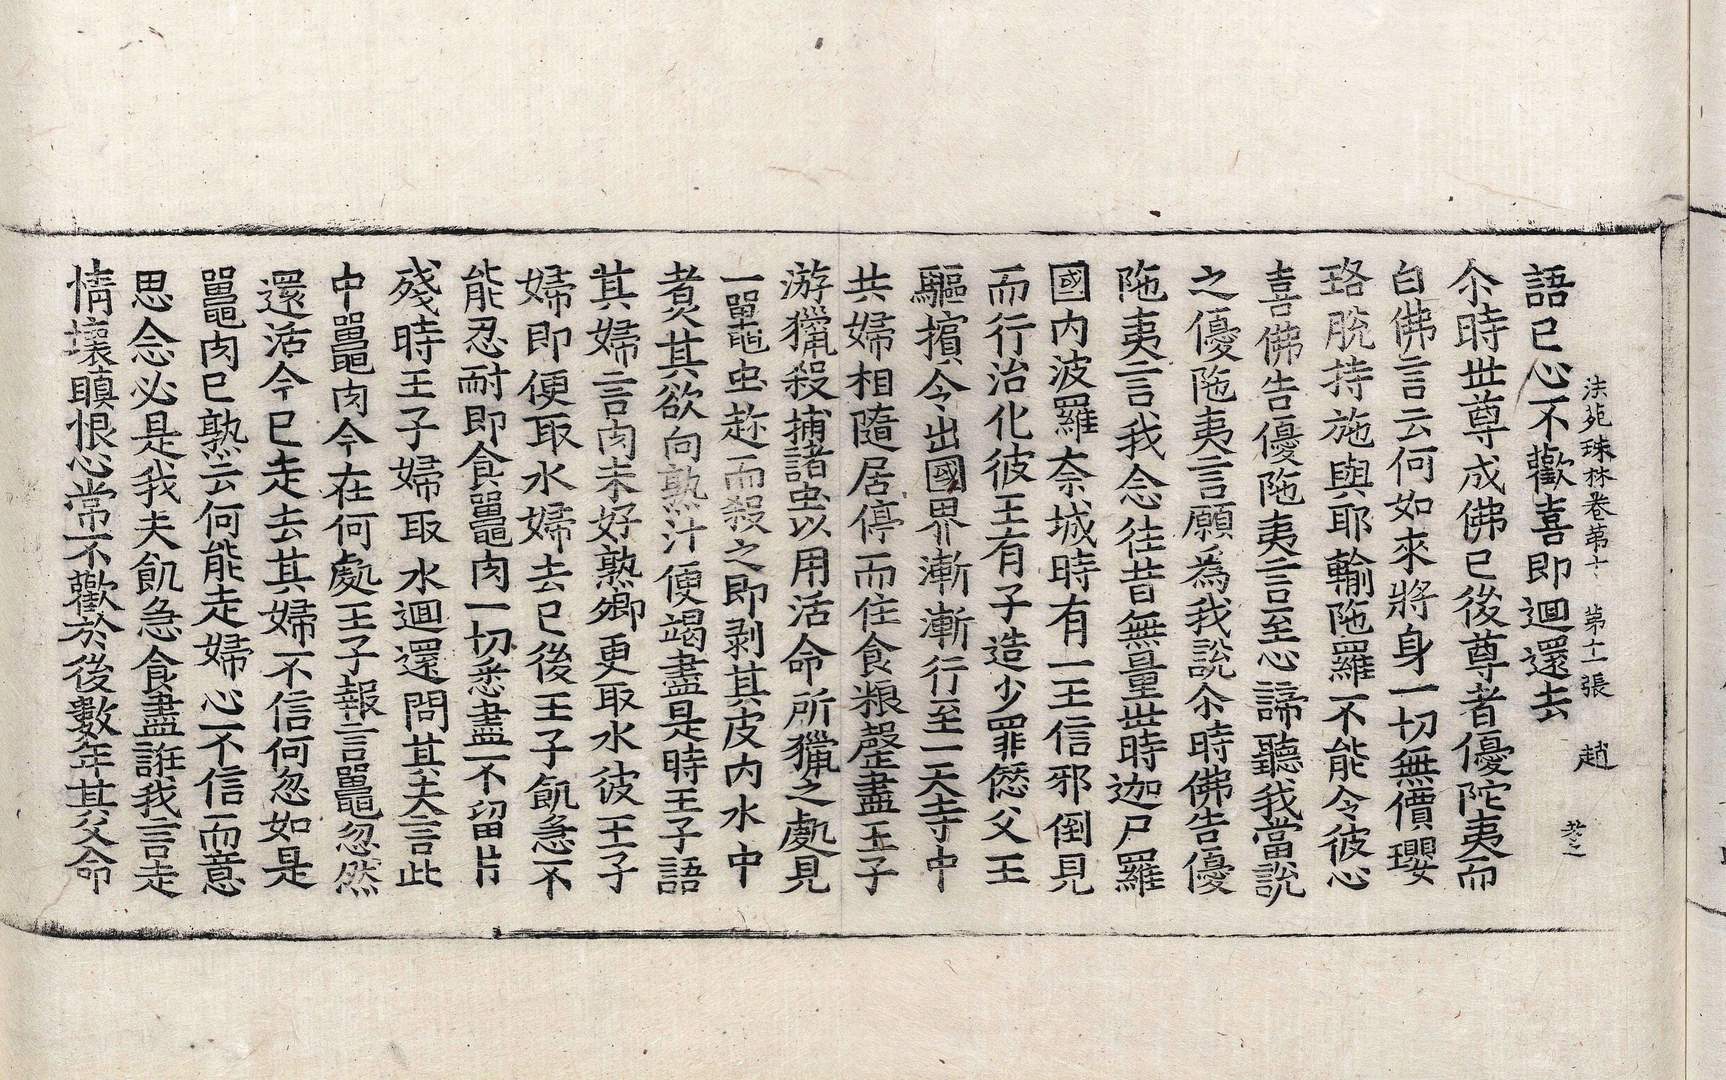 法苑珠林卷第十　第十一張　趙
語已心不歡喜即迴還去
尒時世尊成佛已後尊者優陀夷而
白佛言云何如來將身一切無價瓔
珞脫持施與耶輸陁羅不能令彼心
喜佛告優陁夷言至心諦聽我當說
之優陁夷言願為我說尒時佛告優
陁夷言我念往昔無量世時迦尸羅
國內波羅奈城時有一王信邪倒見
而行治化彼王有子造少罪愆父王
驅擯令出國界漸漸行至一天寺中
共婦相隨居停而住食粮罄盡王子
游獵殺捕諸虫以用活命所獵之處見
一鼉虫趂而殺之即剥其皮內水中
煮其欲向熟汁便竭盡是時王子語
其婦言肉未好熟卿更取水彼王子
婦即便取水婦去已後王子飢急不
能忍耐即食鼉肉一切悉盡不留片
殘時王子婦取水迴還問其夫言此
中鼉肉今在何處王子報言鼉忽然
還活今已走去其婦不信何忽如是
鼉肉已熟云何能走婦心不信而意
思念必是我夫飢急食盡誑我言走
情壞瞋恨心常不歡於後數年其父命